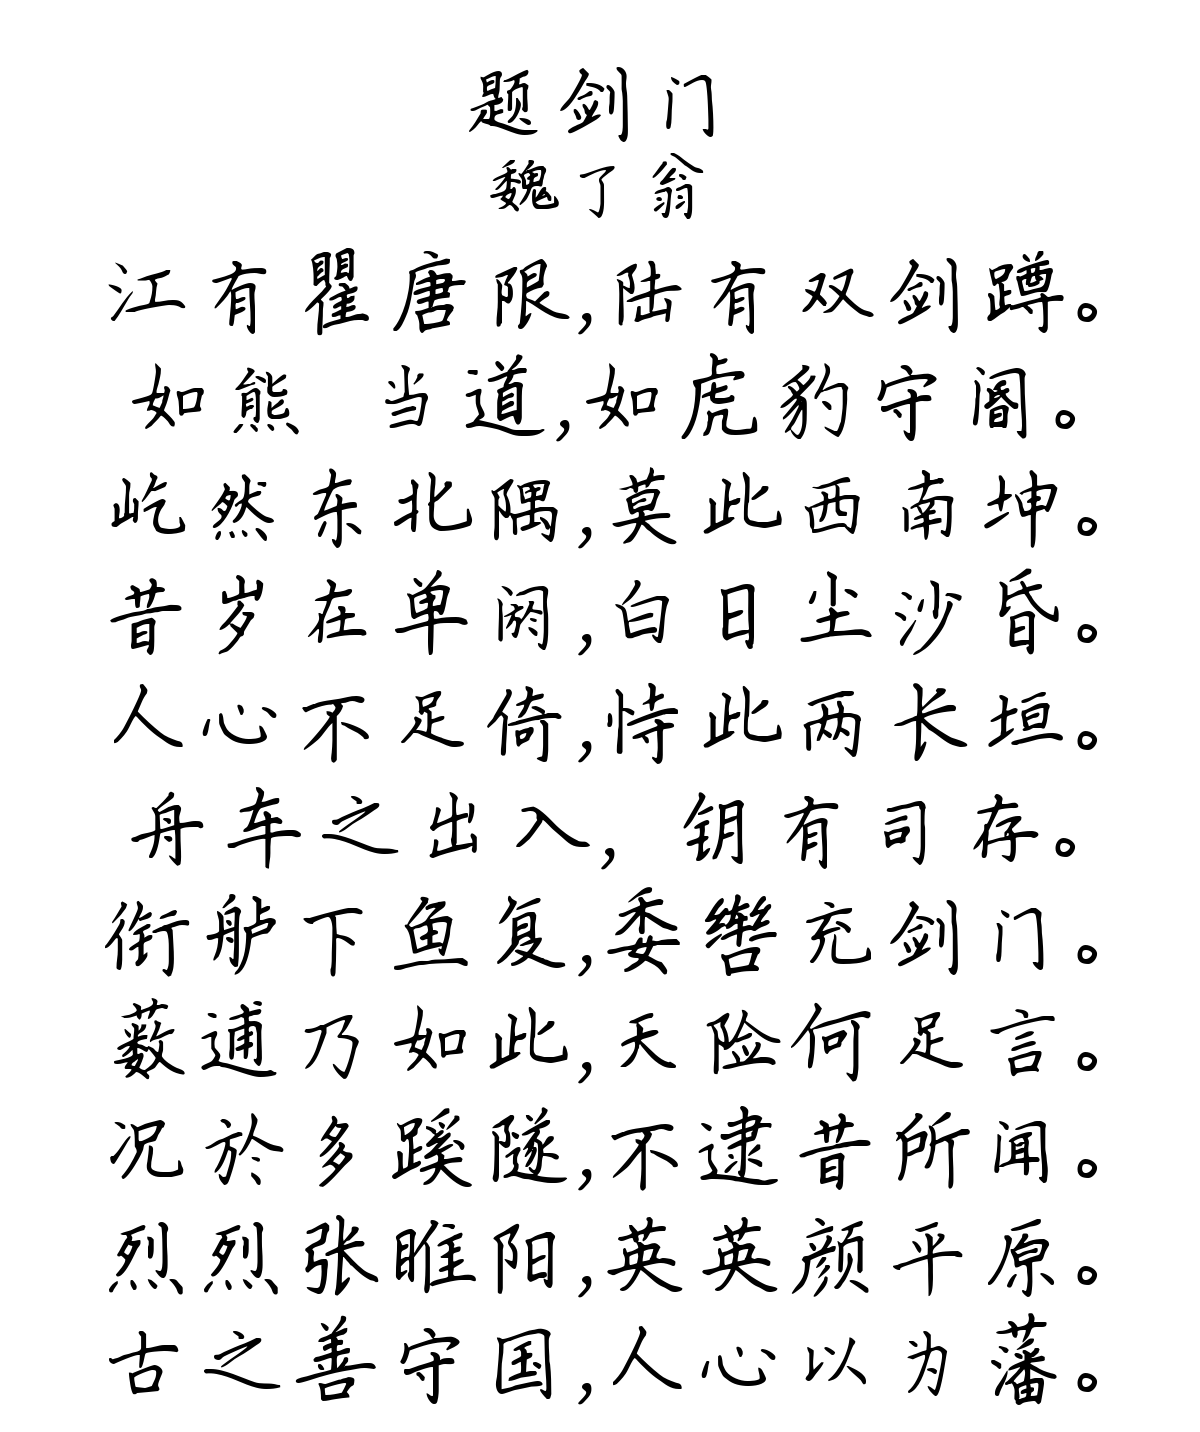 题剑门
魏了翁
江有瞿唐限,陆有双剑蹲。
如熊 当道,如虎豹守阍。
屹然东北隅,莫此西南坤。
昔岁在单阏,白日尘沙昏。
人心不足倚,恃此两长垣。
舟车之出入, 钥有司存。
衔舻下鱼复,委辔充剑门。
薮逋乃如此,天险何足言。
况於多蹊隧,不逮昔所闻。
烈烈张睢阳,英英颜平原。
古之善守国,人心以为藩。